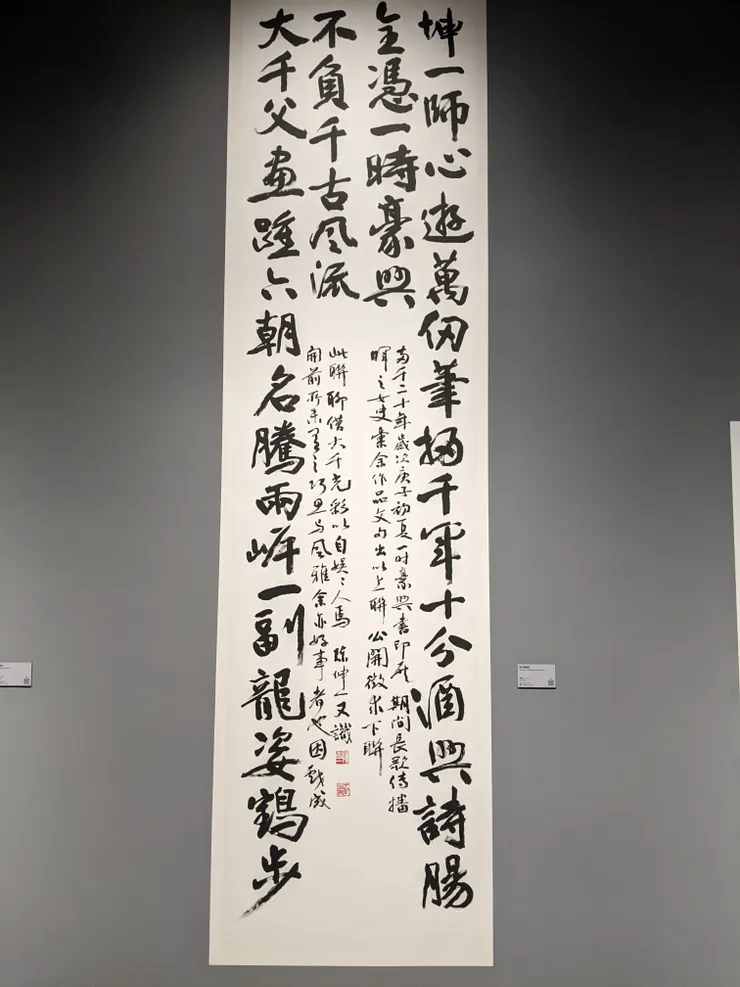 坤一師心遊萬仞筆掃千軍十分酒興詩腸
全憑一時豪興
千二十年歲次庚子初夏一时豪興書期間長歌傳播
暉之余作品文句出以上聯公開徵求下聯
大千父畫踵六朝名騰兩岸一副龍姿鶴步
不負千古風流
開前所未有之巧思与風雅余亦好事者也因戲成
此聯聊借大千光彩以自娛〻人焉 陳坤一又識